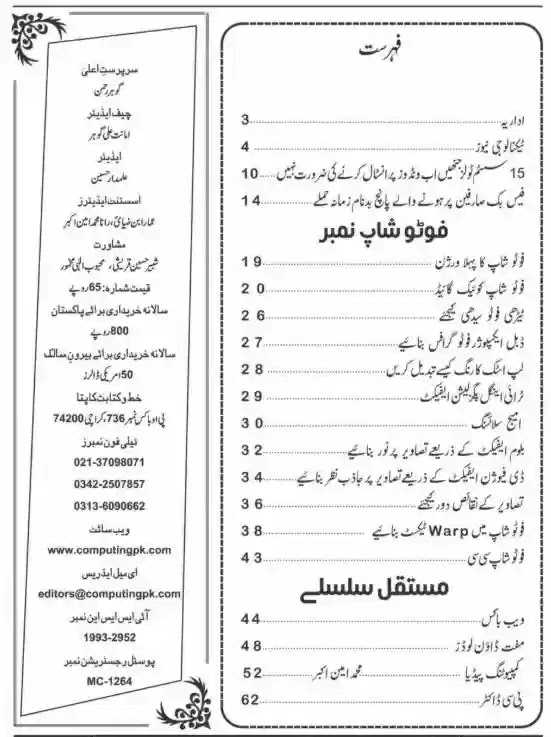 فہرست
اداریہ 3
ٹیکنالوجی نیوز 4
15 سسٹم ٹولز جنھیں اب ونڈوز پر انسٹال کرنے کی ضرورت نہیں 10
فیس بک صارفین پر ہونے والے پانچ بدنام زمانہ حملے 14
فوٹو شاپ نمبر
فوٹو شاپ کا پہلا ورژن 19
فوٹو شاپ کوئیک گائیڈ 20
ٹیڑھی فوٹو سیدھی کیجئے 26
ڈبل ایکسپوژر فوٹو گرافس بنائیے 27
لپ اسٹک کا رنگ کیسے تبدیل کریں 28
ٹرائی اینگل پگزلیشن ایفیکٹ 29
امیج سلائسنگ 30
بلوم ایفیکٹ کے ذریعے تصاویر پر نور بنائیے 32
ڈی فیوژن ایفیکٹ کے ذریعے تصاویر پر جاذب نظر بنائیے 34
تصاویر کے نقائص دور کیجئے 36
فوٹو شاپ میں Warp ٹیکسٹ بنائیے 38
فوٹو شاپ سی سی 43
مستقل سلسلے
ویب باکس 44
مفت ڈاؤن لوڈز 48
کمپیوٹنگ پیڈیا محمد امین اکبر 52
پی سی ڈاکٹر 62
سرپرست اعلیٰ
گوہر رحمن
چیف ایڈیٹر
امانت علی گوہر
ایڈیٹر
علمدار حسین
اسسٹنٹ ایڈیٹرز
عمار ابن ضیائ، رانا محمد امین اکبر
مشاورت
شبیر حسین قریشی، محبوب الٰہی مخمور
قیمت شمارہ: 65 روپے
سالانہ خریداری برائے پاکستان
800 روپے
سالانہ خریداری برائے بیرون ممالک
50 امریکی ڈالرز
خط و کتابت کا پتا
پی او باکس نمبر 736، کراچی 74200
ٹیلی فون نمبرز
021-37098071
0342-2507857
0313-6090662
ویب سائٹ
www.computingpk.com
ای میل ایڈریس
editors@computingpk.com
آئی ایس ایس این نمبر
1993-2952
پوسٹل رجسٹریشن نمبر
MC-1264